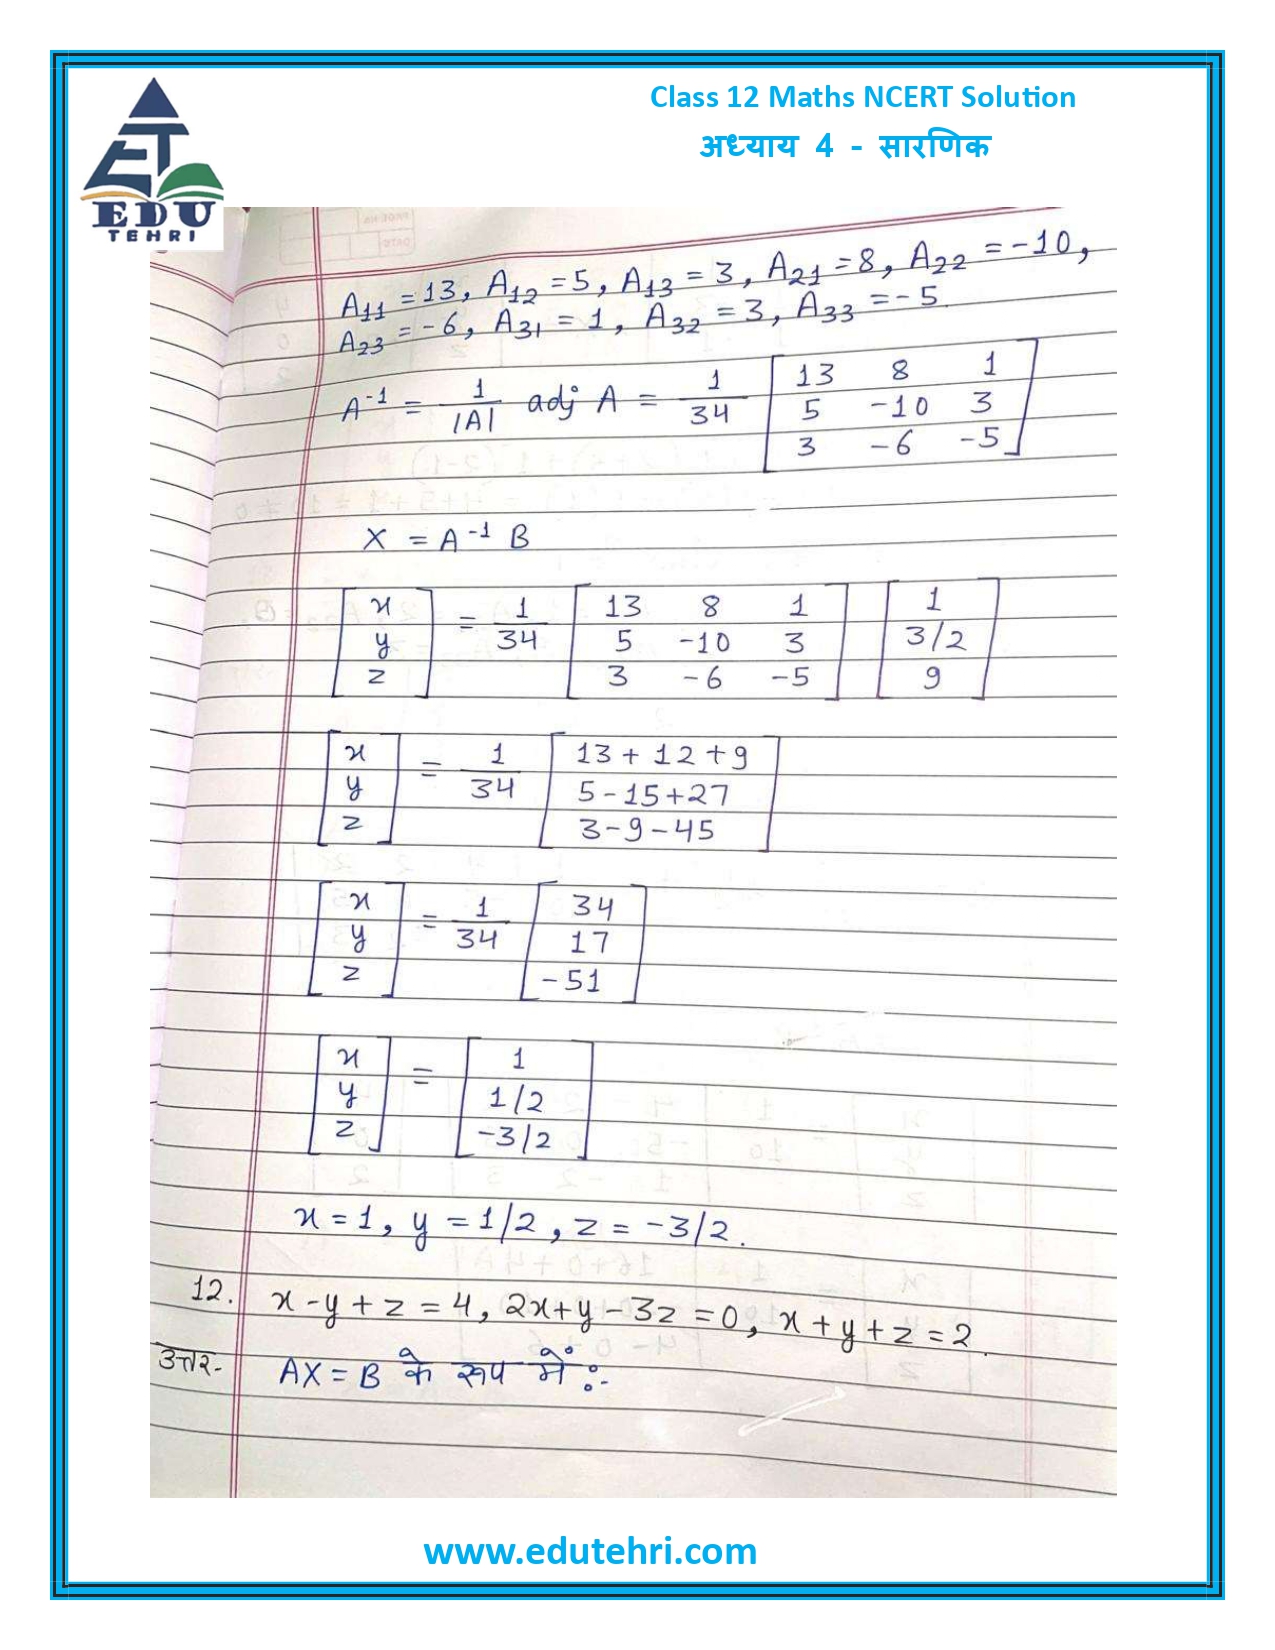 Class 12 Maths NCERT Solution
अध्याय 4 - सारणिक
EDU
TEHRI
A11 = 13, A12 = 5, A13 = 3, A21 = 8, A22 = -10,
A23 = -6, A31 = 1, A32 = 3, A33 = -5.
A^-1 = 1/|A| adj A = 1/34 [13 8 1
5 -10 3
3 -6 -5]
X = A^-1 B
[x y z] = 1/34 [13 8 1
5 -10 3
3 -6 -5] [1 3/2 9]
[x y z] = 1/34 [13 + 12 + 9
5 - 15 + 27
3 - 9 - 45]
[x y z] = 1/34 [34
17
-51]
[x y z] = [1
1/2
-3/2]
x = 1, y = 1/2, z = -3/2.
12. x - y + z = 4, 2x + y - 3z = 0, x + y + z = 2.
उत्तर- AX = B के रूप में :-
www.edutehri.com